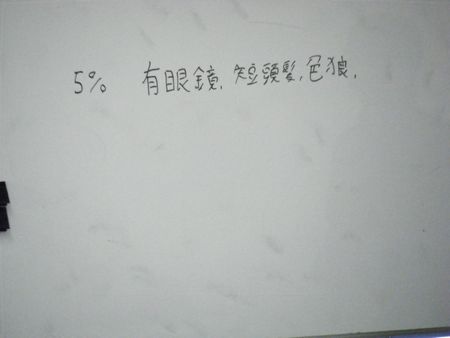 5% 有眼鏡,短頭髮,色狼,